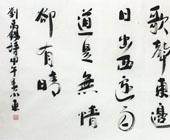 歌聲東邊
日出西邊雨
道是無情
卻有晴
劉禹錫詩甲午